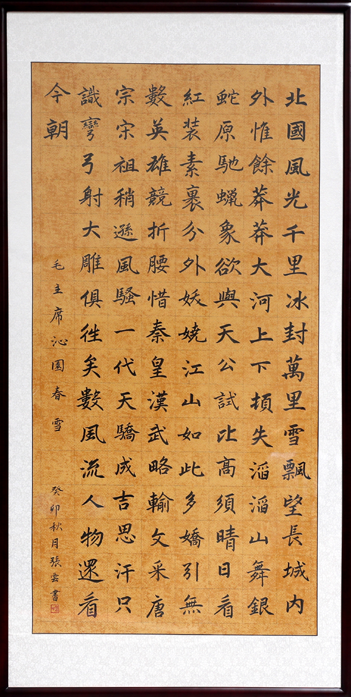 北國風光千里冰封萬里雪飄望長城內
外惟餘莽莽大河上下頓失滔滔山舞銀
蛇原馳蠟象欲與天公試比高須晴日看
紅裝素裹分外妖嬈江山如此多嬌引無
數英雄競折腰惜秦皇漢武略輸文采唐
宗宋祖稍遜風騷一代天驕成吉思汗只
識彎弓射大雕俱往矣數風流人物還看
今朝
毛主席沁園春雪
癸卯秋月張云書